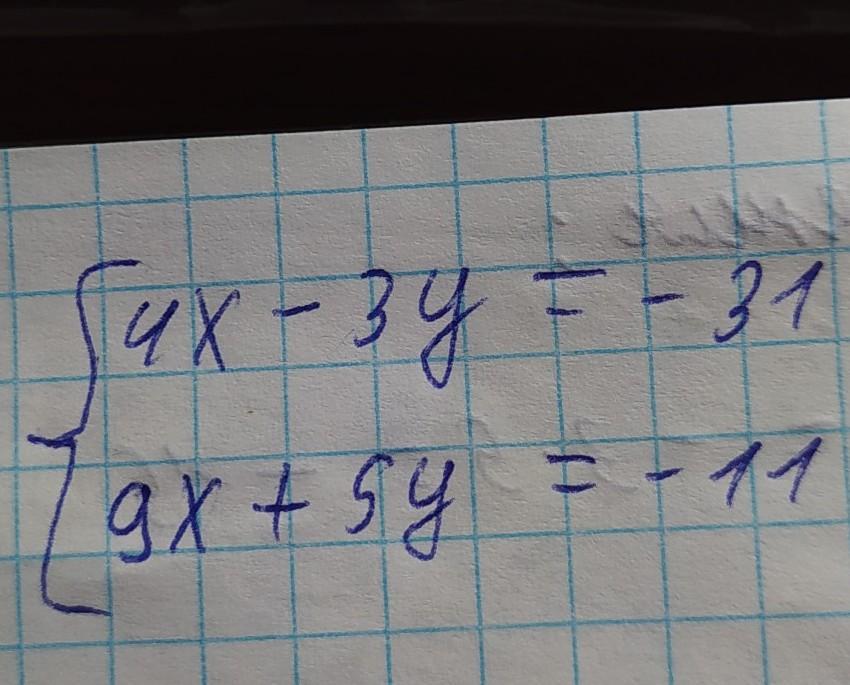 4x - 3y = - 31
9x + 5y = - 11